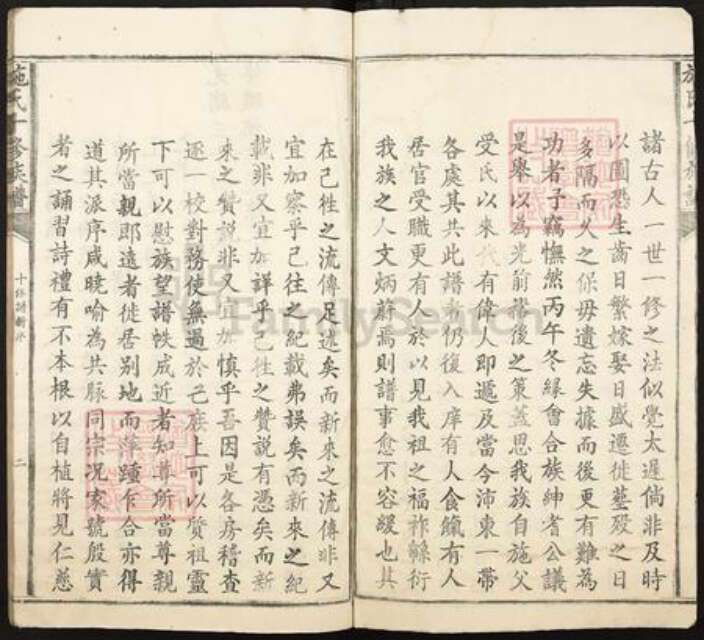 諸古人一世一修之法似覺太遲倘非及時
以圖恐生齒日繁嫁娶日盛遷徙塟殁之日
多隔而久之保毋遺忘失據而後更有難為
功者予竊憮然丙午冬緣會合族紳耆公議
是舉以為光前裕後之策蓋思我族自施父
受氏以來代有偉人即遞及當今沛東一帶
各處其共此譜者仍復入庠有人食餼有人
居官受職更有人於以見我祖之福祚綿衍
我族之人文炳蔚焉則譜事愈不容緩也其
在已徃之流傳足述矣而新來之流傳非又
宜加察乎已徃之紀載弗誤矣而新來之紀
載非又宜加詳乎已徃之贊說有憑矣而新
來之贊說非又宜加慎乎吾因是各房稽查
逐一校對務使無過於乙庶上可以質祖靈
下可以慰族望譜帙成近者知尊所當尊親
所當親即遠者徙居別地而萍踵乍合亦得
道其派序咸曉喻為共脉同宗况家號殷實
者之誦習詩禮有不本根以自植將見仁慈
施氏十修族譜
十修譜新序
二
FamilySearch